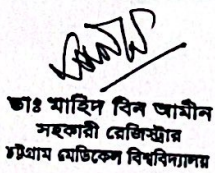 ডাঃ মাহিদ বিন আমীন
সহকারী রেজিস্ট্রার
চট্টগ্রাম মেডিকেল বিশ্ববিদ্যালয়